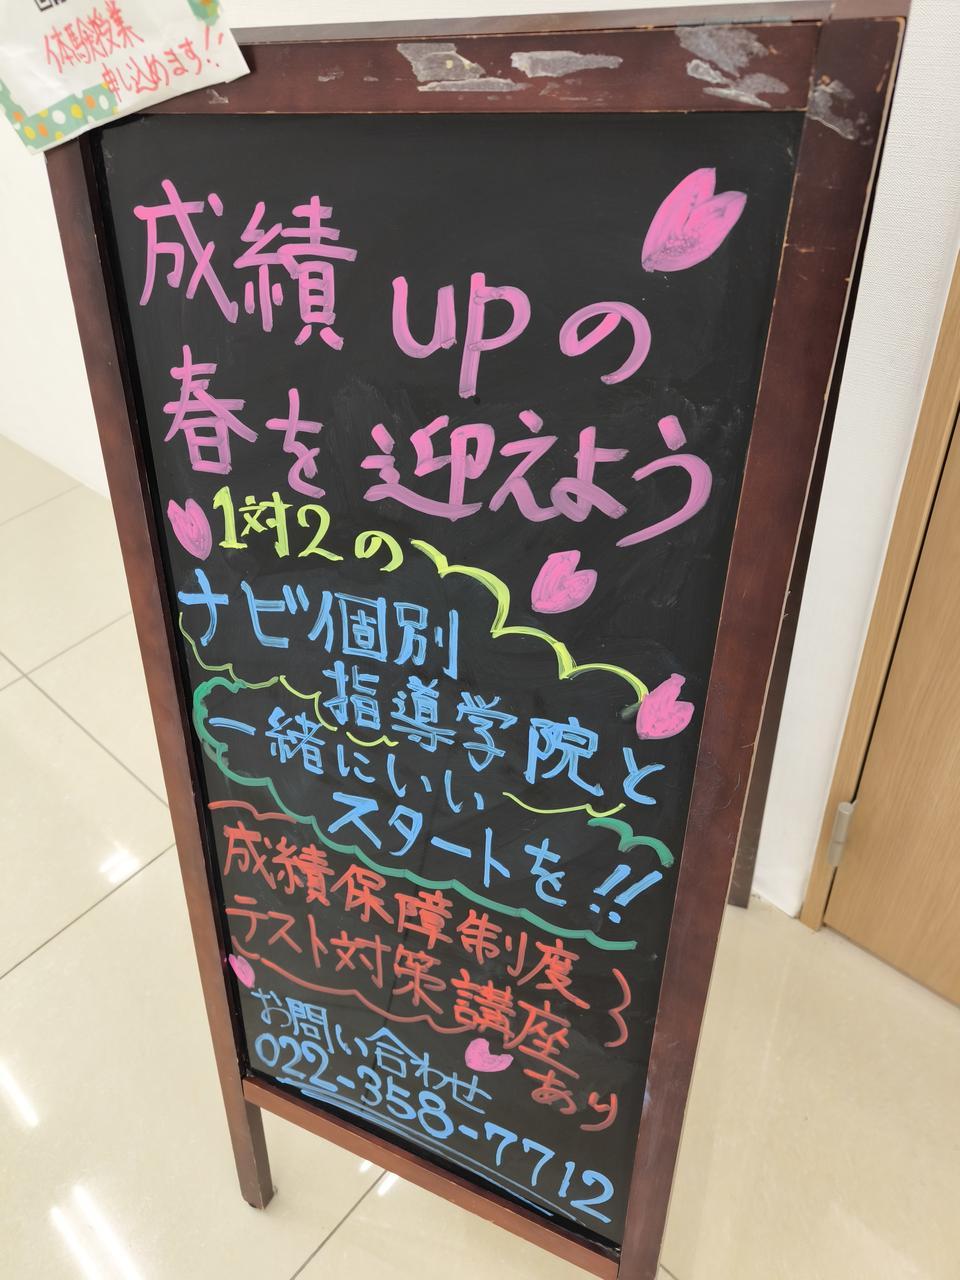 体験授業
申し込めます!!
成績 upの
春を迎えよう
1対2の
ナビ個別
指導学院と
一緒にいい
スタートを!!
成績保障制度
テスト対策講座
あり
お問い合わせ
022-358-7712